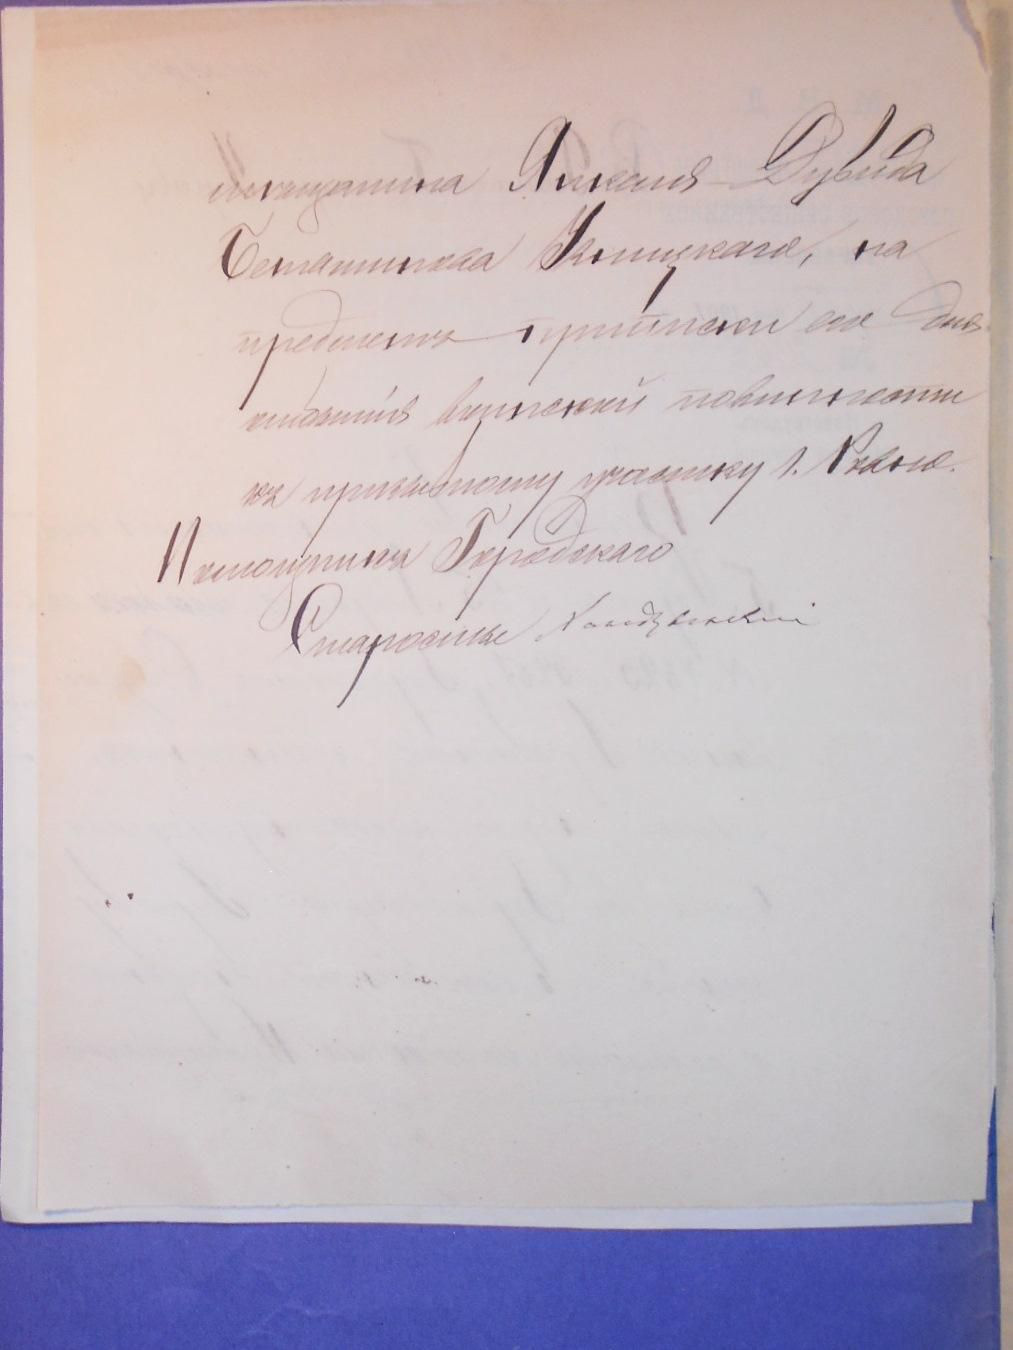 мѣщанина Янкеля-Дувида
Беньяминова Клицкаго, на
предметъ приписки его для
отбытія воинской повинности
къ призывному участку г. Ровно.
Помощникъ Городскаго
Старосты